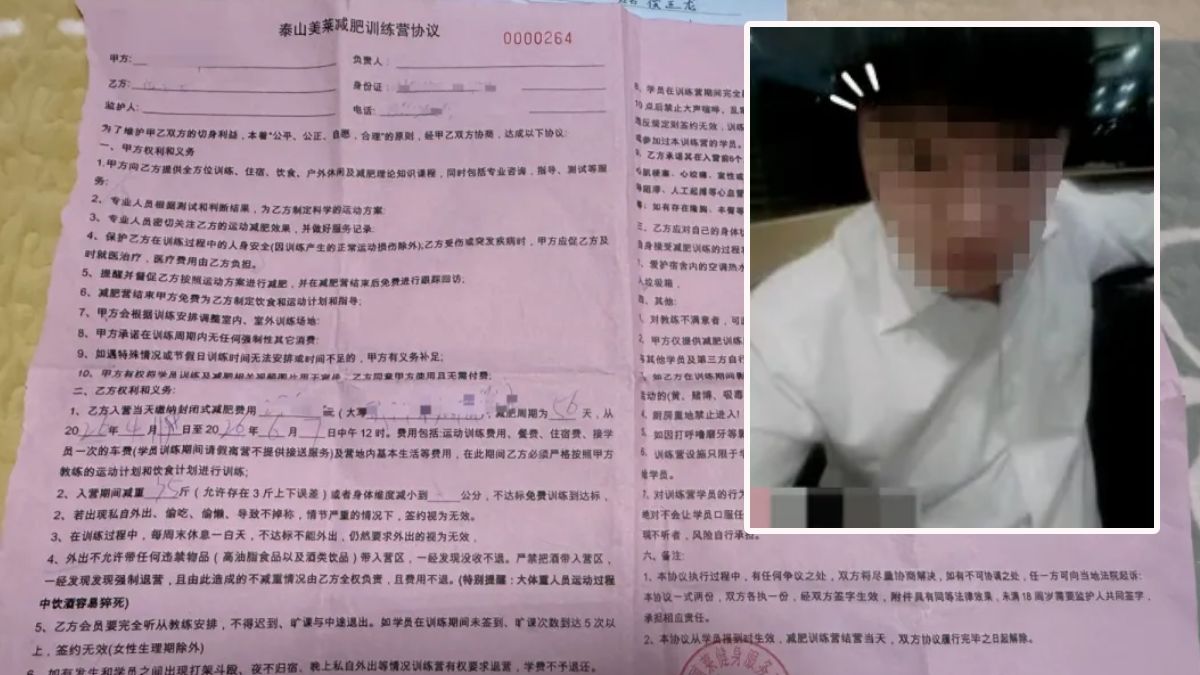 泰山美莱减肥训练营协议
0000264
甲方:
负责人:
乙方:
身份证:
监护人:
电话:
为了维护甲乙双方的切身利益，本着"公平、公正、自愿、合理"的原则，经甲乙双方协商，达成以下协议:
一、甲方权利和义务
1.甲方向乙方提供全方位训练、住宿、饮食、户外休闲及减肥理论知识课程，同时包括专业咨询，指导、测试等服
务:
2、专业人员根据测试和判断结果，为乙方制定科学的运动方案:
3、专业人员密切关注乙方的运动减肥效果，并做好服务记录:
4、保护乙方在训练过程中的人身安全(因训练产生的正常运动损伤除外);乙方受伤或突发疾病时，甲方应促乙方及
时就医治疗，医疗费用由乙方负担。
5、提醒并督促乙方按照运动方案进行减肥，并在减肥营结束后免费进行跟踪回访;
6、减肥营结束甲方免费为乙方制定饮食和运动计划和指导;
7、甲方会根据训练安排调整室内、室外训练场地:
8、甲方承诺在训练周期内无任何强制性其它消费:
9、如遇特殊情况或节假日训练时间无法安排或时间不足的，甲方有义务补足;
10、甲方有权将学员训练及减肥相关视频图片用于宣传，乙方同意甲方使用且无需付费;
二、乙方权利和义务:
1、乙方入营当天缴纳封闭式减肥费用 元（大写 减肥周期为56天，从
20 年4月 日至2026年6月7日中午12时。费用包括:运动训练费用、餐费、住宿费、接学
员一次的车费(学员训练期间请假离营不提供接送服务)及营地内基本生活等费用，在此期间乙方必须严格按照甲方
教练的运动计划和饮食计划进行训练;
2、入营期间减重 斤（允许存在3斤上下误差）或者身体维度减小到 公分，不达标免费训练到达标，
2、若出现私自外出、偷吃、偷懒、导致不掉称，情节严重的情况下，签约视为无效。
3、在训练过程中，每周末休息一白天，不达标不能外出，仍然要求外出的视为无效，
4、外出不允许带任何违禁物品（高油脂食品以及酒类饮品）带入营区，一经发现没收不退。严禁把酒带入营区，
一经发现发现强制退营，且由此造成的不减重情况由乙方全权负责，且费用不退。(特别提醒：大体重人员运动过程
中饮酒容易猝死)
5、乙方会员要完全听从教练安排，不得迟到、旷课与中途退出。如学员在训练期间未签到、旷课次数到达5次以
上，签约无效(女性生理期除外)
6、如有发生和学员之间出现打架斗殴、夜不归宿、晚上私自外出等情况训练营有权要求退营，学费不予退还。
8、学员在训练营期间完全
10点后禁止大声喧哗，乱
违反规定则签约无效，训练
或参加过本训练营的学员。
9、乙方承诺其在入营前6个
肌梗塞、心绞痛、室性或
人工起搏等心血管
如有存在隆胸、丰臀等
三、乙方应对自己的身体状
自身接受减肥训练的过程
1、爱护宿舍内的空调热水
入垃圾箱，
四、其他:
1、对教练不满意者，可
2、甲方仅提供减肥训练
与其他学员及第三方自行
3、如乙方在训练期间
活动的(黄、赌博、吸毒
4、厨房重地禁止进入！
5、如因打呼噜磨牙等
6、训练营设施只限于
给学员。
7、对训练营学员的行为
绝对不会让学员口服任
现不听者，风险自行承担。
六、备注:
1、本协议执行过程中，有任何争议之处，双方将尽量协商解决，如有不可协调之处，任一方可向当地法院起诉:
本协议一式两份，双方各执一份，经双方签字生效，附件具有同等法律效果，未满18周岁需要监护人共同签字，
承担相应责任。
2、本协议从学员报到时生效，减肥训练营结营当天，双方协议履行完毕之日起解除。
莱健身服务